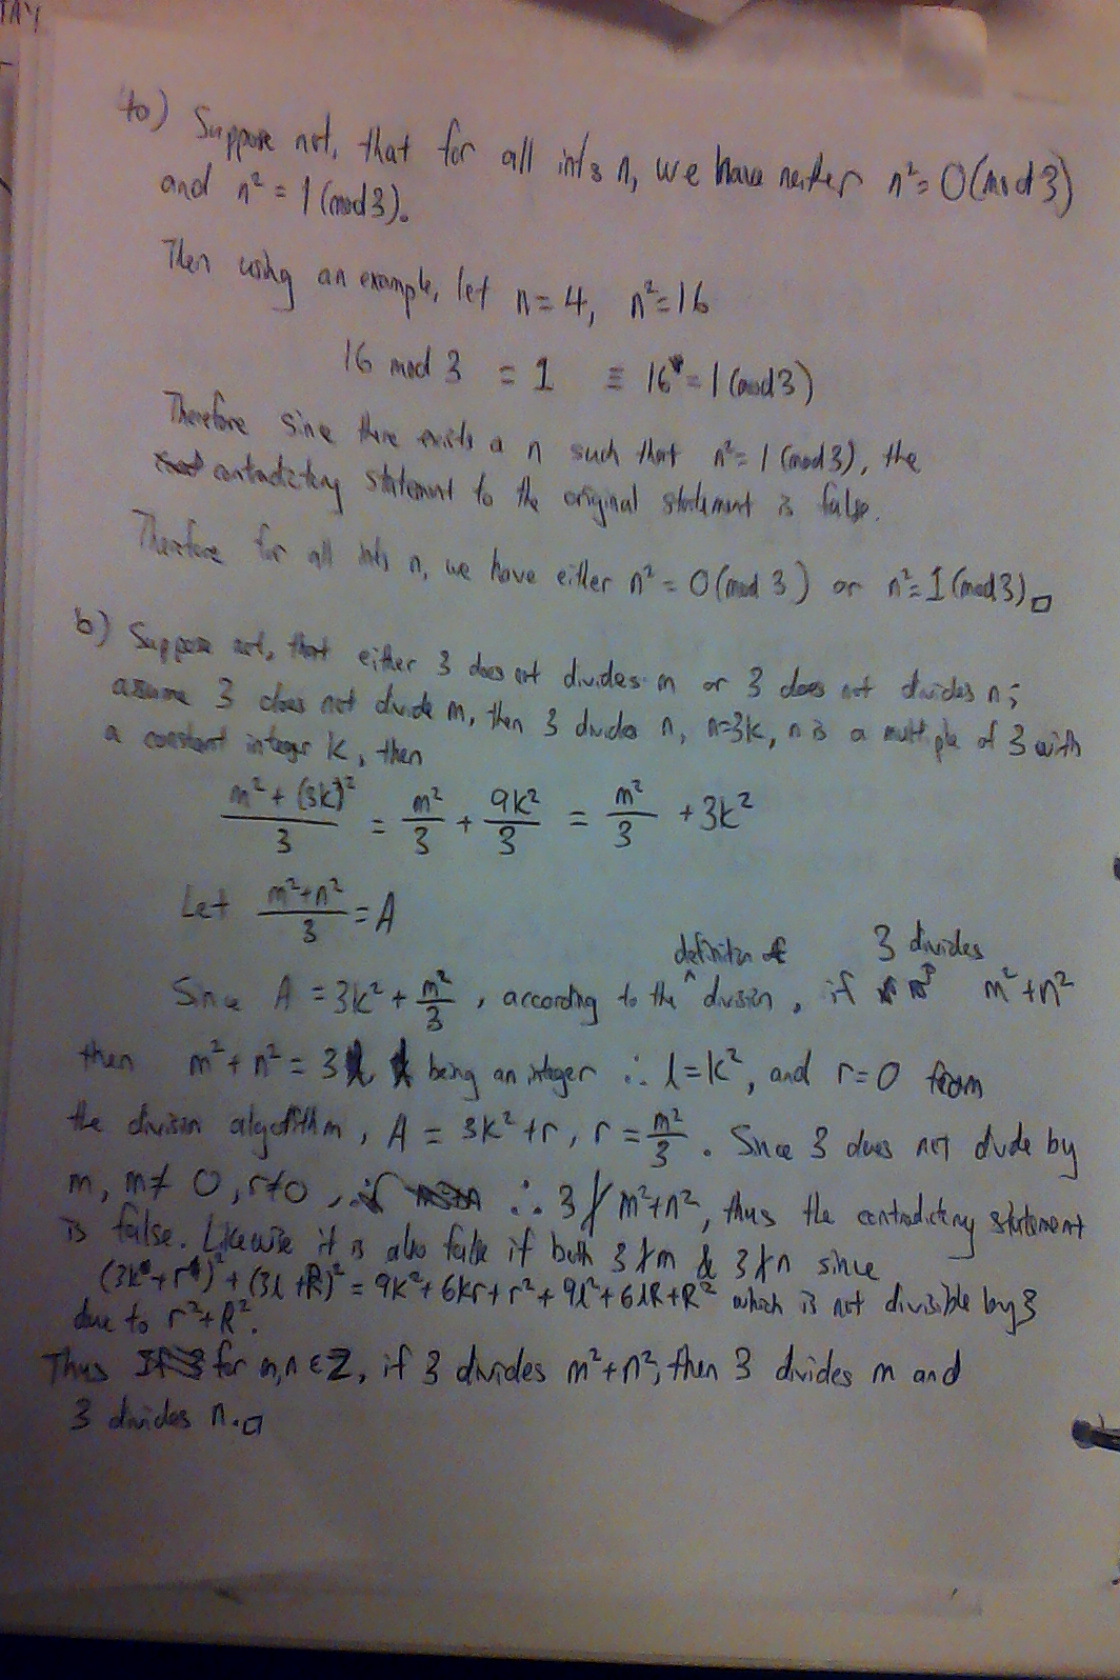 TAY
4a) Suppose not, that for all ints n, we have neither n² = 0(mod 3)
and n² = 1 (mod 3).
Then using an example, let n = 4, n² = 16
16 mod 3 = 1 ≡ 16 = 1 (mod 3)
Therefore since there exists a n such that n² = 1 (mod 3), the
contradictory statement to the original statement is false.
Therefore for all ints n, we have either n² = 0(mod 3) or n² = 1(mod 3). □
b) Suppose not, that either 3 does not divides m or 3 does not divides n;
assume 3 does not divide m, then 3 divides n, n=3k, n is a multiple of 3 with
a constant integer k, then
(m² + (3k)²)/3 = m²/3 + 9k²/3 = m²/3 + 3k²
Let (m²+n²)/3 = A
definition of 3 divides
Since A = 3k² + m²/3, according to the ^ division, if m²+n²
then m² + n² = 3l l being an integer ∴ l = k², and r = 0 from
the division algorithm, A = 3k² + r, r = m²/3. Since 3 does not divide by
m, m ≠ 0, r ≠ 0, ∴ 3 ∤ m²+n², thus the contradictory statement
is false. Likewise it is also false if both 3 ∤ m & 3 ∤ n since
(3k + r)² + (3l + R)² = 9k² + 6kr + r² + 9l² + 6lR + R² which is not divisible by 3
due to r² + R².
Thus for m,n ∈ Z, if 3 divides m² + n², then 3 divides m and
3 divides n. □